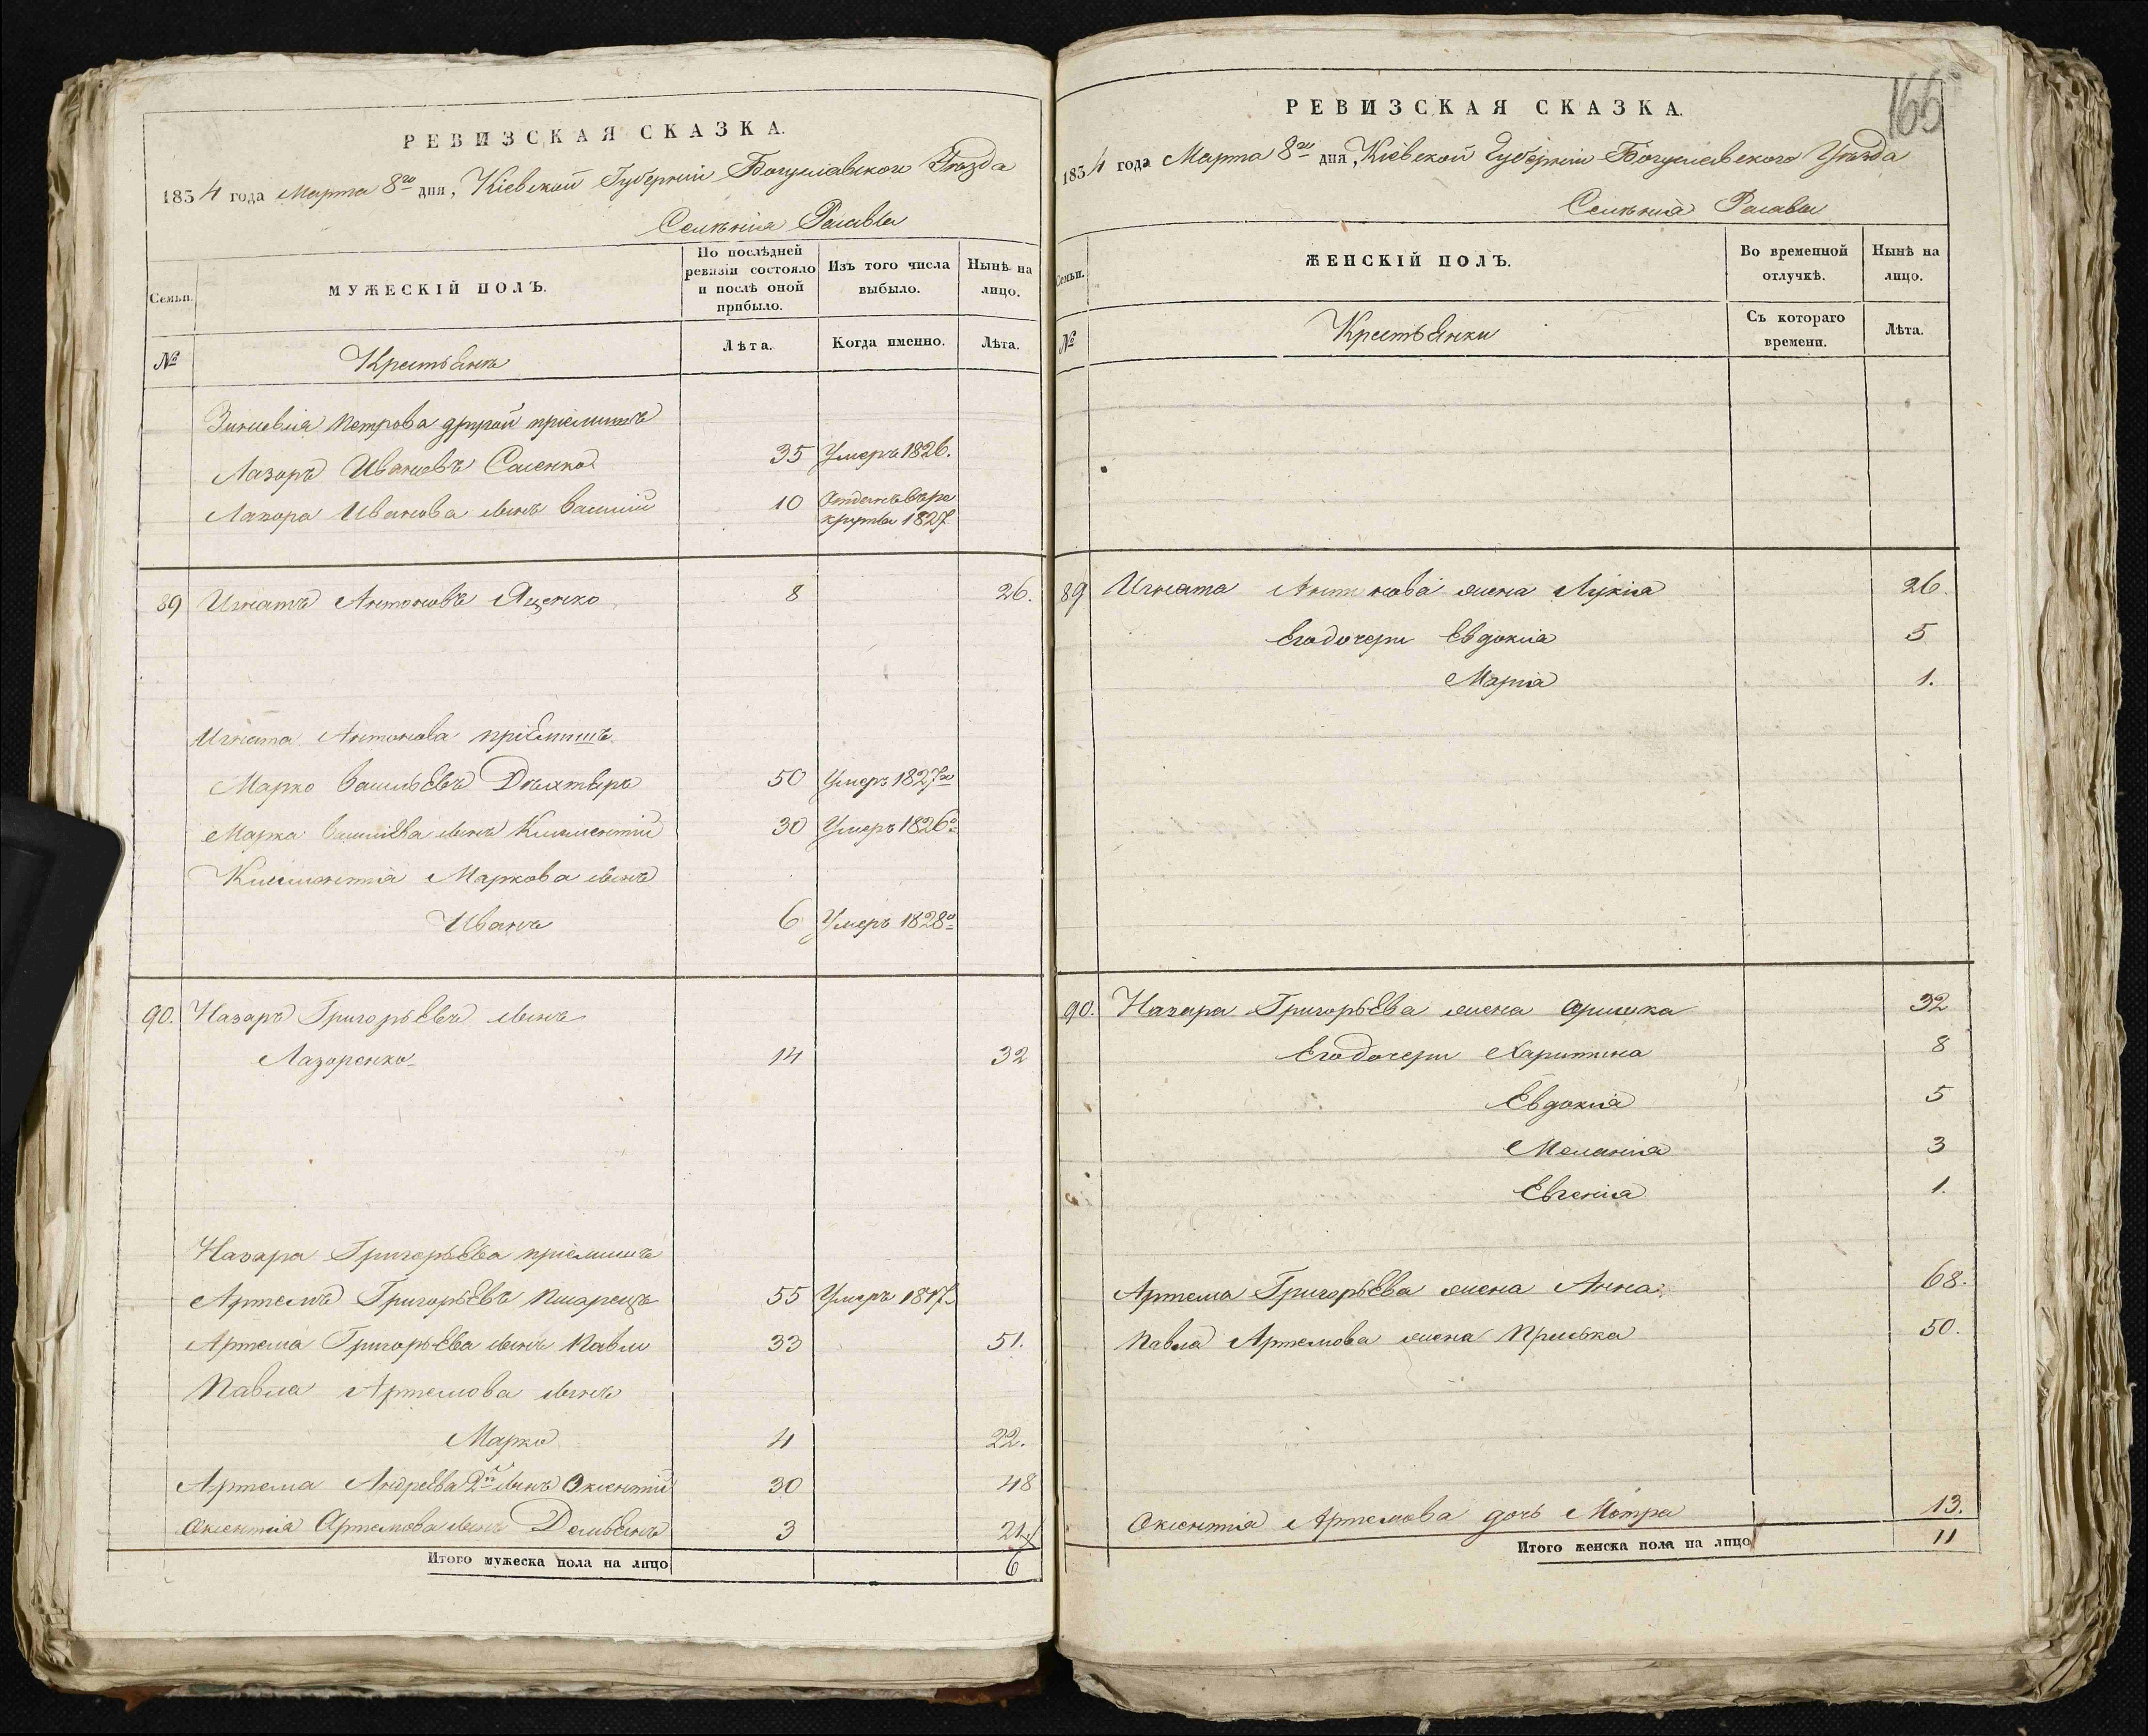 РЕВИЗСКАЯ СКАЗКА.
1854 года Марта 8го дня, Кіевской Губерніи Богуславскаго Уѣзда
Селѣнія Расавы
Семьи.
МУЖЕСКІЙ ПОЛЪ.
По послѣдней ревизіи состояло и послѣ оной прибыло.
Изъ того числа выбыло.
Нынѣ на лицо.
№
Крестьянъ
Лѣта.
Когда именно.
Лѣта.
Зиновія Петрова другой пріемышъ
Лазоръ Ивановъ 35 Умеръ 1826.
Лазора Иванова сынъ Василій 10 Отданъ въ ре
круты 1827
89 Игнатъ Антоновъ Яценко 8 26.
Игната Антонова пріемышъ
Марко Васильевъ Дѣхтяръ 50 Умеръ 1827го
Марка Василева сынъ Климентій 30 Умеръ 1826го
Климентія Маркова сынъ
Иванъ 6 Умеръ 1828го
90. Назаръ Григорьевъ сынъ
Лазоренко 14 32
Назара Григорьева пріемышъ
Артемъ Григорьевъ 55 Умеръ
Артема Григорьева сынъ Павло 33 51.
Павла Артемова сынъ
Марко 4 22.
Артема Андреева 2й сынъ Оксентій 30 48
Оксентія Артемова сынъ Демьянъ 3 21.
Итого мужеска пола на лицо 6
РЕВИЗСКАЯ СКАЗКА.
1854 года Марта 8го дня, Кіевской Губерніи Богуславскаго Уѣзда
Селѣнія Расавы
Семьи.
ЖЕНСКІЙ ПОЛЪ.
Во временной отлучкѣ.
Нынѣ на лицо.
№
Крестьянки
Съ котораго времени.
Лѣта.
89 Игната Антонова жена Лукія 26.
Его дочери Евдокія 5
Марія 1.
90. Назара Григорьева жена Оришка 32
Его дочери Харитина 8
Евдокія 5
Меланія 3
Евгенія 1.
Артема Григорьева жена Анна 68.
Павла Артемова жена Приська 50.
Оксентія Артемова дочь Мотра 13.
Итого женска пола на лицо 11